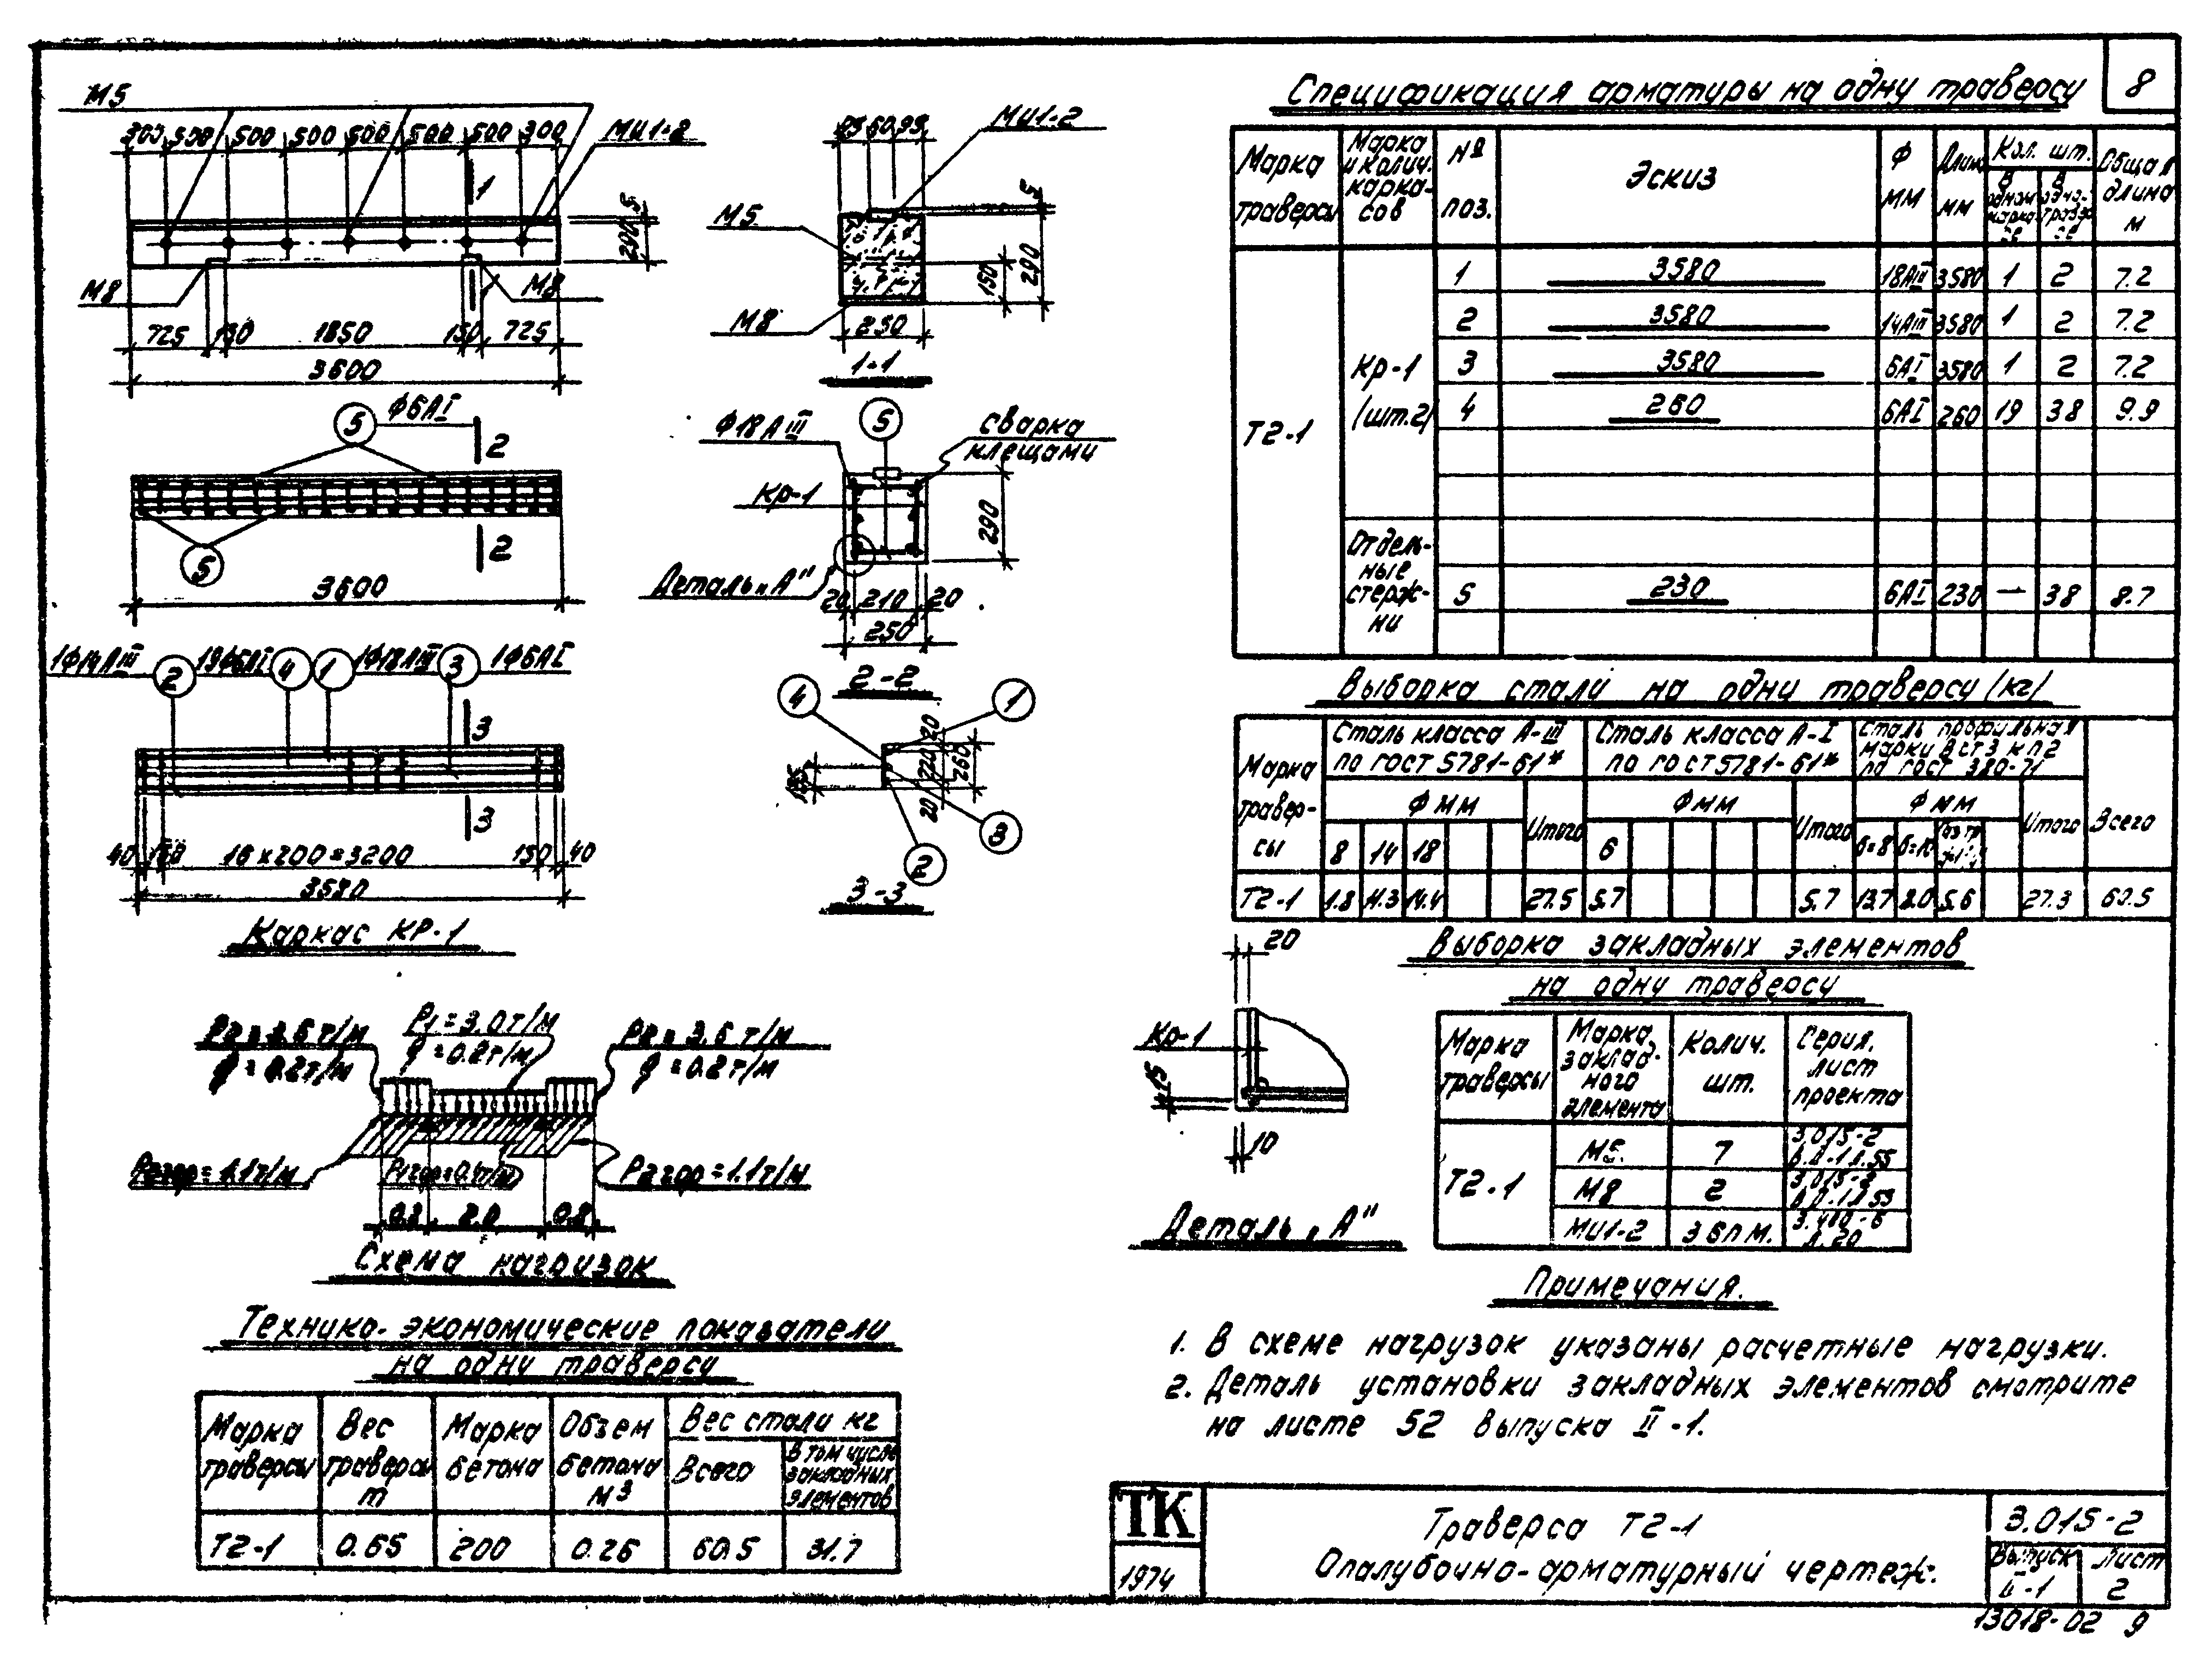 8
М5
300 500 500 500 500 500 500 300
МИ1-2
1
5
290
М8
М8
725 150 1850 150 725
3600
95 60 95
МИ1-2
М5
5
150
290
М8
250
1-1
5 Ф6АI
2
5
2
3600
Ф18АIII
5
сварка
клещами
Кр-1
290
Деталь „А"
20 210 20
250
2-2
1Ф14АIII 2 19Ф6АI 4 1 1Ф18АIII 3 1Ф6АI
3
3
40 150 16х200=3200 150 40
3580
Каркас КР-1
4
1
20
220
260
20
3
2
3-3
Р2=3.6т/м
q=0.2т/м
Р1=3.0т/м
q=0.2т/м
Р2=3.6т/м
q=0.2т/м
Р2гор=1.1т/м
Р1гор=0.4т/м
Р2гор=1.1т/м
0.8 2.0 0.8
Схема нагрузок
Технико-экономические показатели
на одну траверсу
Марка траверсы
Вес траверсы т
Марка бетона
Объем бетона м3
Вес стали кг
Всего
В том числе закладных элементов
Т2-1 0.65 200 0.26 60.5 31.7
Спецификация арматуры на одну траверсу
Марка траверсы
Марка и колич. каркасов
№ поз.
Эскиз
Ф мм
Длин. мм
Кол. шт.
В одном каркасе
В одной траверсе
Общая длина м
Т2-1
Кр-1
(шт.2)
1 3580 18АIII 3580 1 2 7.2
2 3580 14АIII 3580 1 2 7.2
3 3580 6АI 3580 1 2 7.2
4 260 6АI 260 19 38 9.9
Отдель-
ные
стерж-
ни
5 230 6АI 230 — 38 8.7
Выборка стали на одну траверсу (кг)
Марка
травер-
сы
Сталь класса А-III
по ГОСТ 5781-61*
Сталь класса А-I
по ГОСТ 5781-61*
Сталь профильная
марки ВСт3кп2
по ГОСТ 380-71
Ф мм Итого Ф мм Итого Ф мм Итого Всего
8 14 18 6 б=8
Т2-1 1.8 11.3 14.4 27.5 5.7 5.7 13.7 8.0 5.6 27.3 60.5
20
Кр-1
15
10
Деталь „А"
Выборка закладных элементов
на одну траверсу
Марка траверсы
Марка заклад-
ного
элемента
Колич.
шт.
Серия,
лист
проекта
Т2-1
М5 7 3.015-2 В.II-1 Л.55
М8 2 3.015-2 В.II-1 Л.53
МИ1-2 3.6п.м. 3.400-6 Л.20
Примечания.
1. В схеме нагрузок указаны расчетные нагрузки.
2. Деталь установки закладных элементов смотрите
на листе 52 выпуска II-1.
ТК
1974
Траверса Т2-1
Опалубочно-арматурный чертеж.
3.015-2
Выпуск Лист
II-1 2
13018-02 9